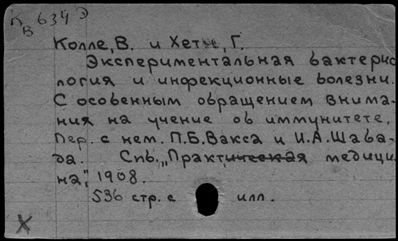 П 634 Э
В
Колле, В. и Хетч, Г.
Экспериментальная бактерио
логия и инфекционные болезни.
С особенным обращением внима-
ния на учение об иммунитете.
Пер. с нем. П.Б.Вакса и И.А.Шаба-
да. Спб. „Практическая медици
на", 1908.
536 стр. с илл.
X